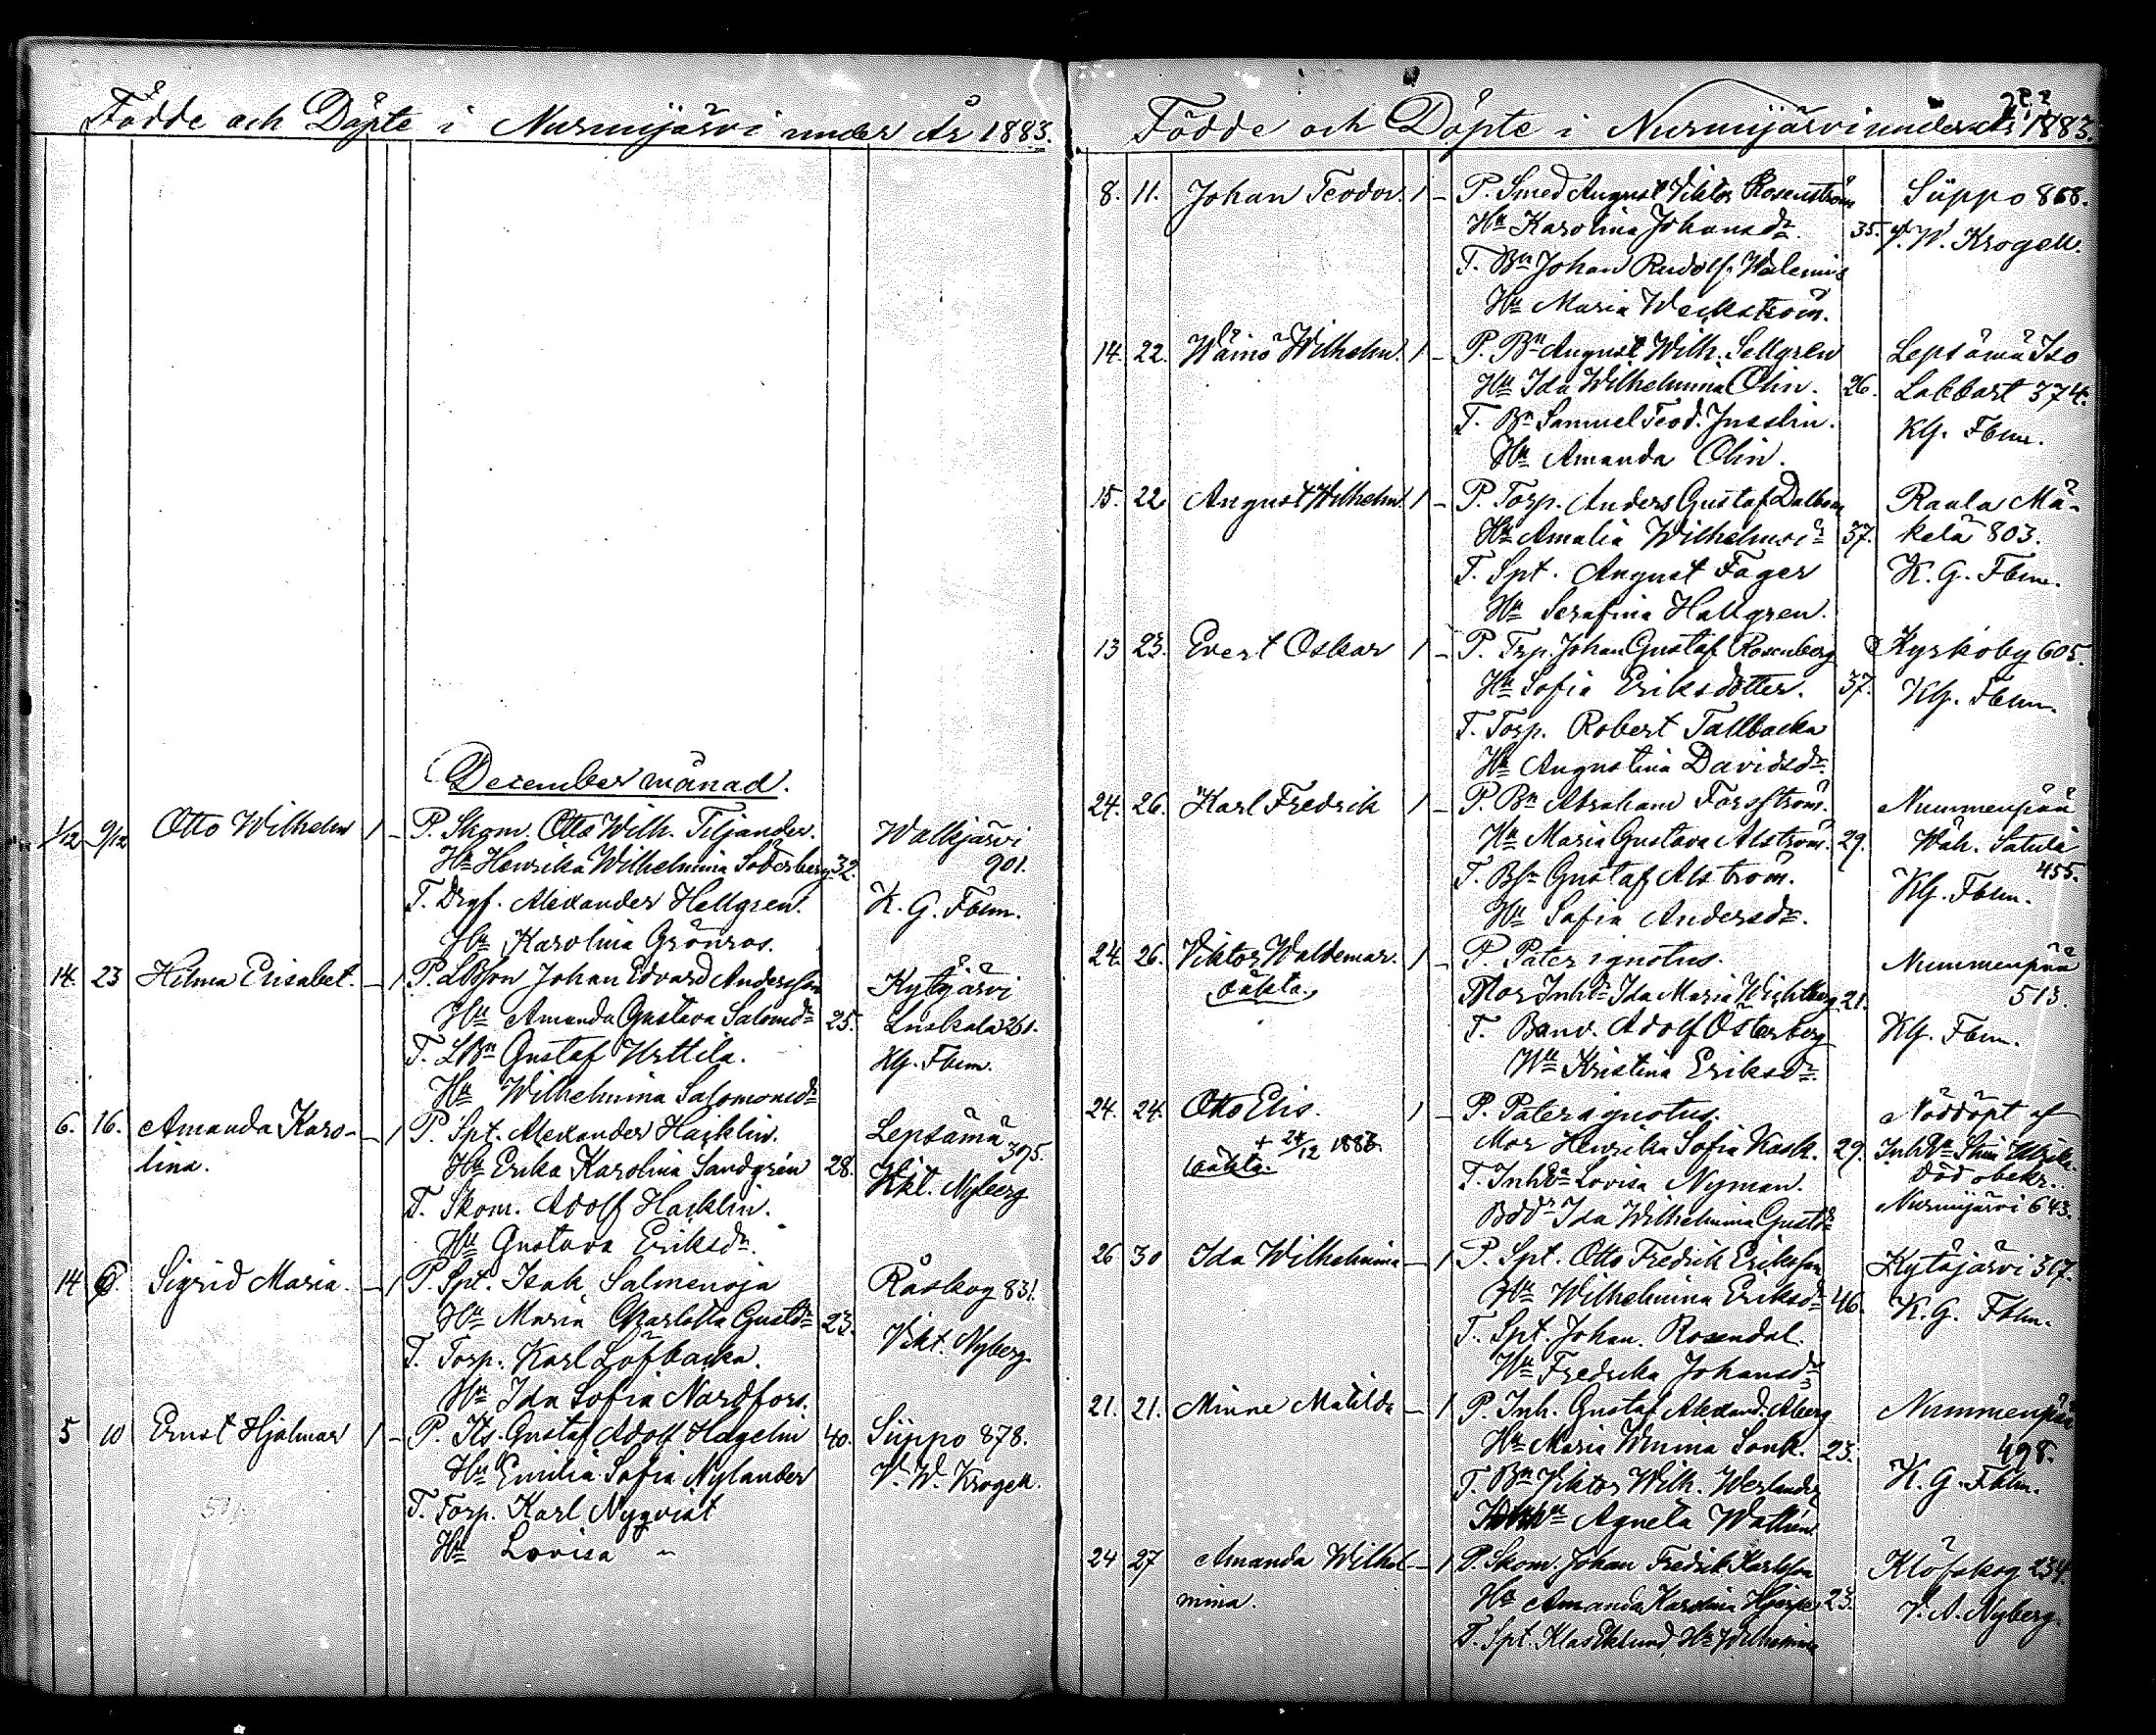 Födde och Döpte i Nurmijärvi under År 1883.
December månad.
1/12 9/12 Otto Wilhelm 1 - P. Skom. Otto Wilh. Tiljander. Walkjärvi
Hu Henrika Wilhelmina Söderberg 32. 901.
T. Drgf. Alexander Hellgren. K. G. Fblm.
Hu Karolina Grönros.
14. 23 Hilma Elisabet. - 1 P. LBson Johan Edvard Andersson Kytäjärvi
Hu Amanda Gustava Salomdr 25. Luskala 261.
T. LBn Gustaf Urttila. Klg. Fblm.
Hu Wilhelmina Salomonsdr
6. 16. Amanda Karo- - 1 P. Spt. Alexander Hacklin. Lepsämä
lina. Hu Erika Karolina Sandgrén 28. 395.
T. Skom. Adolf Hacklin. Vikt. Nyberg
Hu Gustava Eriksdr.
14 Sigrid Maria. - 1 P. Spt. Isak Salmenoja Råskog 831.
Hu Maria Charlotta Gustdr 23.
T. Torp. Karl Löfbacka. Vikt. Nyberg.
Hu Ida Sofia Nordfors.
5 10 Ernst Hjalmar 1 - P. Its. Gustaf Adolf Hagelin 40. Siippo 878.
Hu Emilia Sofia Nylander V. W. Krogell.
T. Torp. Karl Nyqvist
Hu Lovisa "
Födde och Döpte i Nurmijärvi under År 1883.
8. 11. Johan Teodor. 1 - P. Smed August Viktor Rosenström Siippo 868.
Hu Karolina Johansdr. 35. V. W. Krogell.
T. Bn Johan Rudolf Walenius
Hu Maria Weckström.
14. 22. Wäinö Wilhelm. 1 - P. Bn August Wilh. Sellgren Lepsämä Iso
Hu Ida Wilhelmina Olin. 26. Labbart 374.
T. Bn Samuel Teod. Jusslin. Klg. Fblm.
Hu Amanda Olin.
15. 22 August Wilhelm. 1 - P. Torp. Anders Gustaf Dalbom Raala Mä-
Hu Amalia Wilhelmsdr 37. kelä 803.
T. Spt. August Fager K. G. Fblm.
Hu Serafina Hallgren.
13 23. Evert Oskar 1 - P. Trp. Johan Gustaf Rosenberg Kyrkoby 605.
Hu Sofia Eriksdotter. 37. Klg. Fblm.
T. Torp. Robert Tallbacka
Hu Augustina Davidsdr.
24. 26. Karl Fredrik 1 - P. Bn Abraham Forsström. Nummenpää
Hu Maria Gustava Alström. 29. Wäh. Satula
T. Bsn Gustaf Alström. 455.
Hu Sofia Andersdr. Klg. Fblm.
24. 26. Viktor Waldemar. 1 - P. Pater ignotus. Nummenpää
oäkta. Mor Inhdr Ida Maria Wichtberg 21. 513.
T. Banv. Adolf Österberg Klg. Fblm.
Hu Kristina Eriksdr.
24. 24. Otto Elis. 1 - P. Pater ignotus. Nöddöpt af
+ 24/12 1883. Mor Henrika Sofia Kask. 29.
oäkta. T. Lovisa Nyman. Död obekr.
Ida Wilhelmina Gustdr Nurmijärvi 643.
26 30 Ida Wilhelmina - 1 P. Spt. Otto Fredrik Eriksson Kytäjärvi 367.
Hu Wilhelmina Eriksdr 46. K. G. Fblm.
T. Spt. Johan Rosendal.
Hu Fredrika Johansdr
21. 21. Minne Matilda - 1 P. Inh. Gustaf Alexand. Åberg Nummenpää
Hu Maria Wilma Sonk. 23. 498.
T. Bn Viktor Wilh. Weslander K. G. Fblm.
Agneta Wallén
24 27 Amanda Wilhel- - 1 P. Skom. Johan Fredrik Karlsson Klöfskog 234.
mina. Hu Amanda Karolina Hjerpe 23. V. A. Nyberg.
T. Spt. Klas Eklund, Hu Wilhelmina